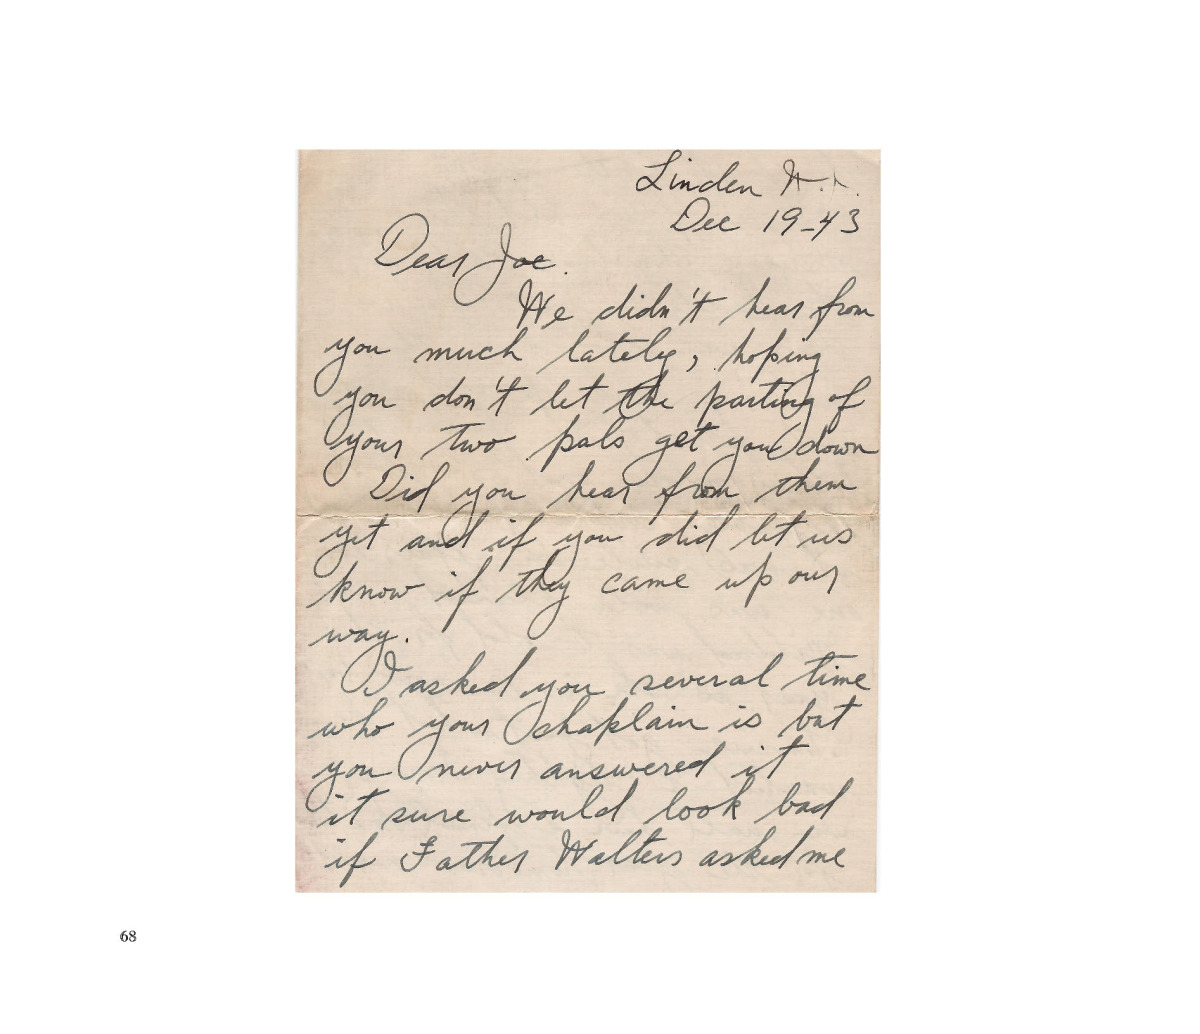 Linden N.J.
Dec 19-43
Dear Joe.
We didn't hear from
you much lately, hoping
you don't let the parting of
your two pals get you down
Did you hear from them
yet and if you did let us
know if they came up our
way.
I asked you several time
who your chaplain is but
you never answered it
it sure would look bad
if Father Walters asked me
68